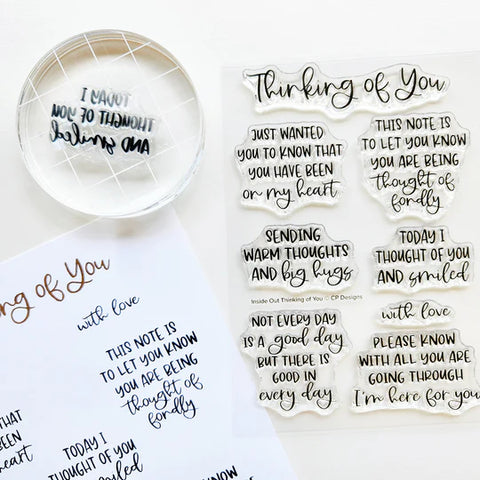 TODAY I
THOUGHT OF YOU
AND smiled
Thinking of You
JUST WANTED
YOU TO KNOW THAT
YOU HAVE BEEN
on my heart
THIS NOTE IS
TO LET YOU KNOW
YOU ARE BEING
thought of
fondly
SENDING
WARM THOUGHTS
AND big hugs
TODAY I
THOUGHT OF YOU
AND smiled
Inside Out Thinking of You © CP Designs
with love
NOT EVERY DAY
IS a good day
BUT THERE IS
GOOD IN
every day
PLEASE KNOW
WITH ALL YOU ARE
GOING THROUGH
I'm here for you
of You
with love
THIS NOTE IS
TO LET YOU KNOW
YOU ARE BEING
thought of
fondly
THAT
BEEN
heart
TODAY I
THOUGHT OF YOU
smiled
KNOW